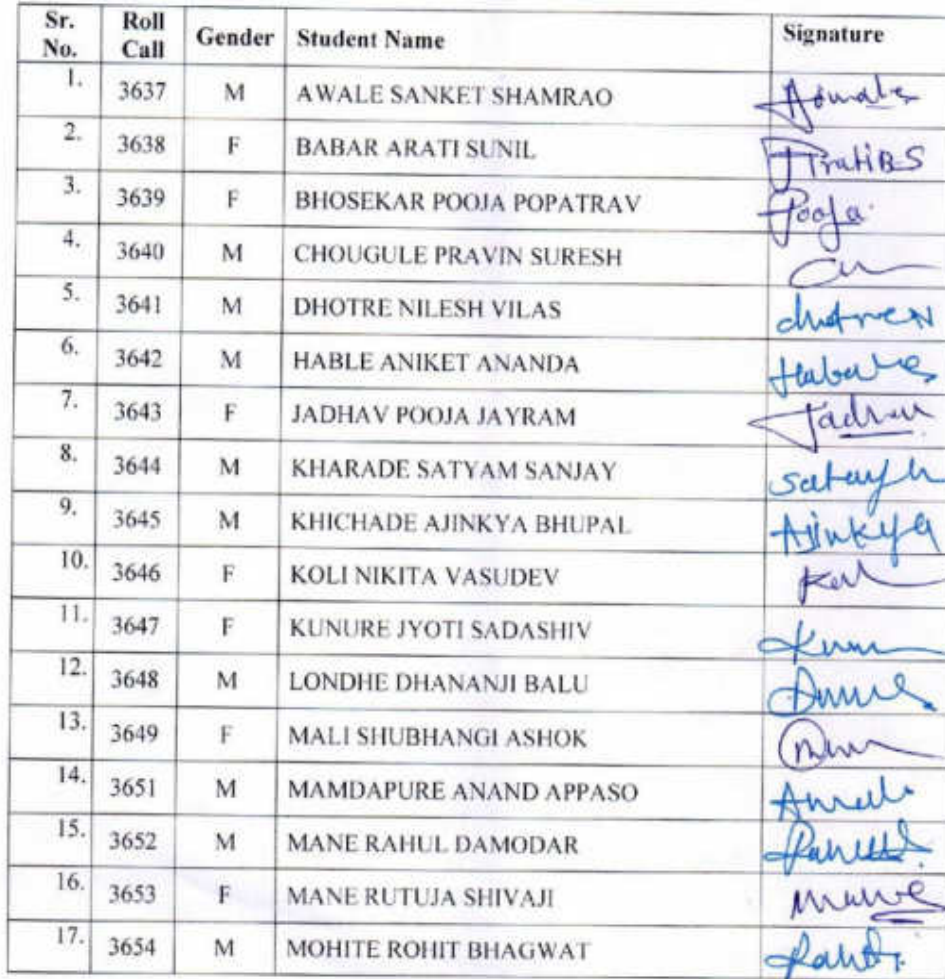 Sr. No. Roll Call Gender Student Name Signature
1. 3637 M AWALE SANKET SHAMRAO
2. 3638 F BABAR ARATI SUNIL
3. 3639 F BHOSEKAR POOJA POPATRAV Pooja
4. 3640 M CHOUGULE PRAVIN SURESH
5. 3641 M DHOTRE NILESH VILAS
6. 3642 M HABLE ANIKET ANANDA
7. 3643 F JADHAV POOJA JAYRAM
8. 3644 M KHARADE SATYAM SANJAY
9. 3645 M KHICHADE AJINKYA BHUPAL Ajinkya
10. 3646 F KOLI NIKITA VASUDEV
11. 3647 F KUNURE JYOTI SADASHIV
12. 3648 M LONDHE DHANANJI BALU
13. 3649 F MALI SHUBHANGI ASHOK
14. 3651 M MAMDAPURE ANAND APPASO
15. 3652 M MANE RAHUL DAMODAR
16. 3653 F MANE RUTUJA SHIVAJI
17. 3654 M MOHITE ROHIT BHAGWAT